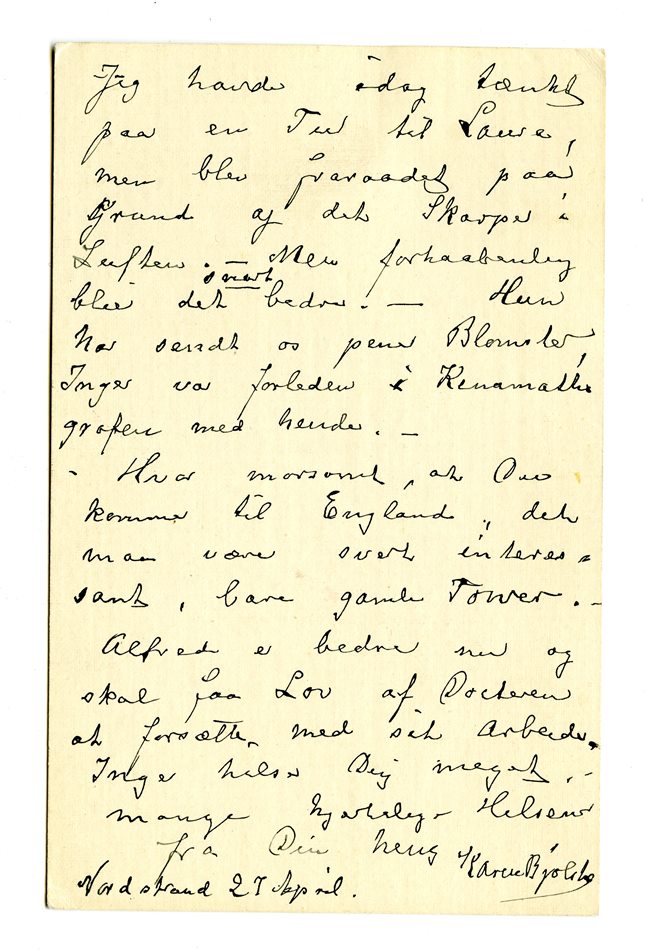 Jeg havde idag tænkt
paa en Tur til Laura,
men blev fraraadet paa
Grund af det Skarpe i
Luften. — Men forhaabentlig
snart
blir det bedre. — Hun
har sendt os pene Blomster,
Inger var forleden i Kinamato
grafen med hende. —
- Hvor morsomt, at Du
kommer til England, det
maa være svert interes=
sant, bare gamle Tower. —
Alfred er bedre nu og
skal faa Lov af Doctoren
at forsætte med sit Arbeide.
Inger hilser Dig meget. —
mange hjertelige Hilsener
fra Din heng Karen Bjølstad
Nordstrand 27 April.